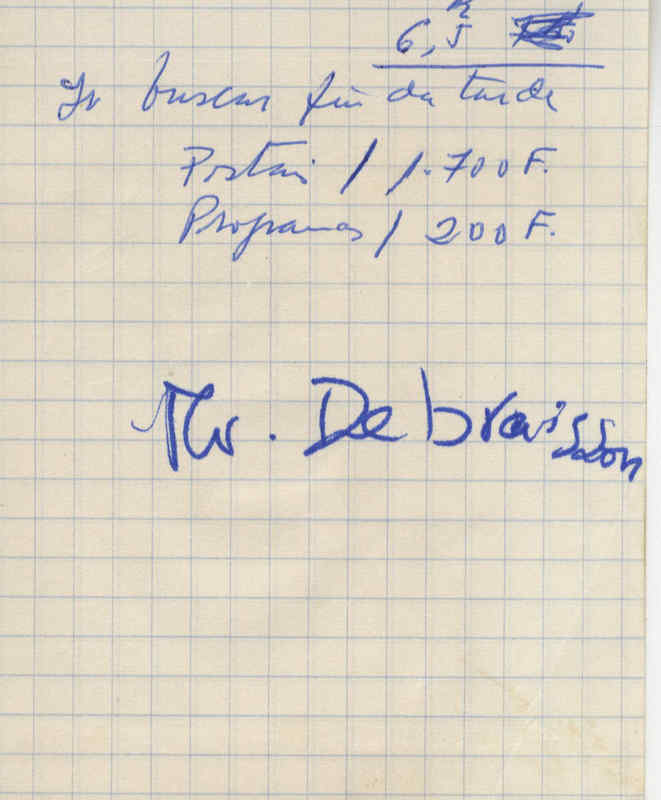 6,5
Ir buscar fim da tarde
Postais / 1.700 F.
Programas / 200 F.
Mr. Debraisson